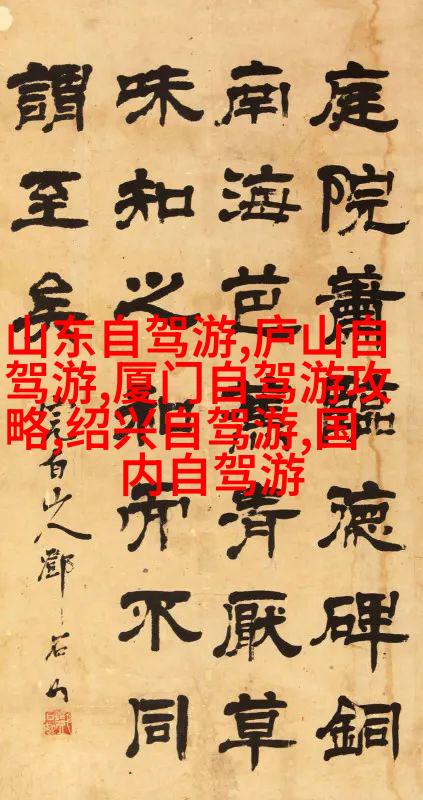 山东自驾游,庐山自
驾游,厦门自驾游攻
略,绍兴自驾游,国
内自驾游
庭院蕭臨德碑銅
南海芭蕉青厭草
味知之不同
謂至矣
完白山人鄧石如